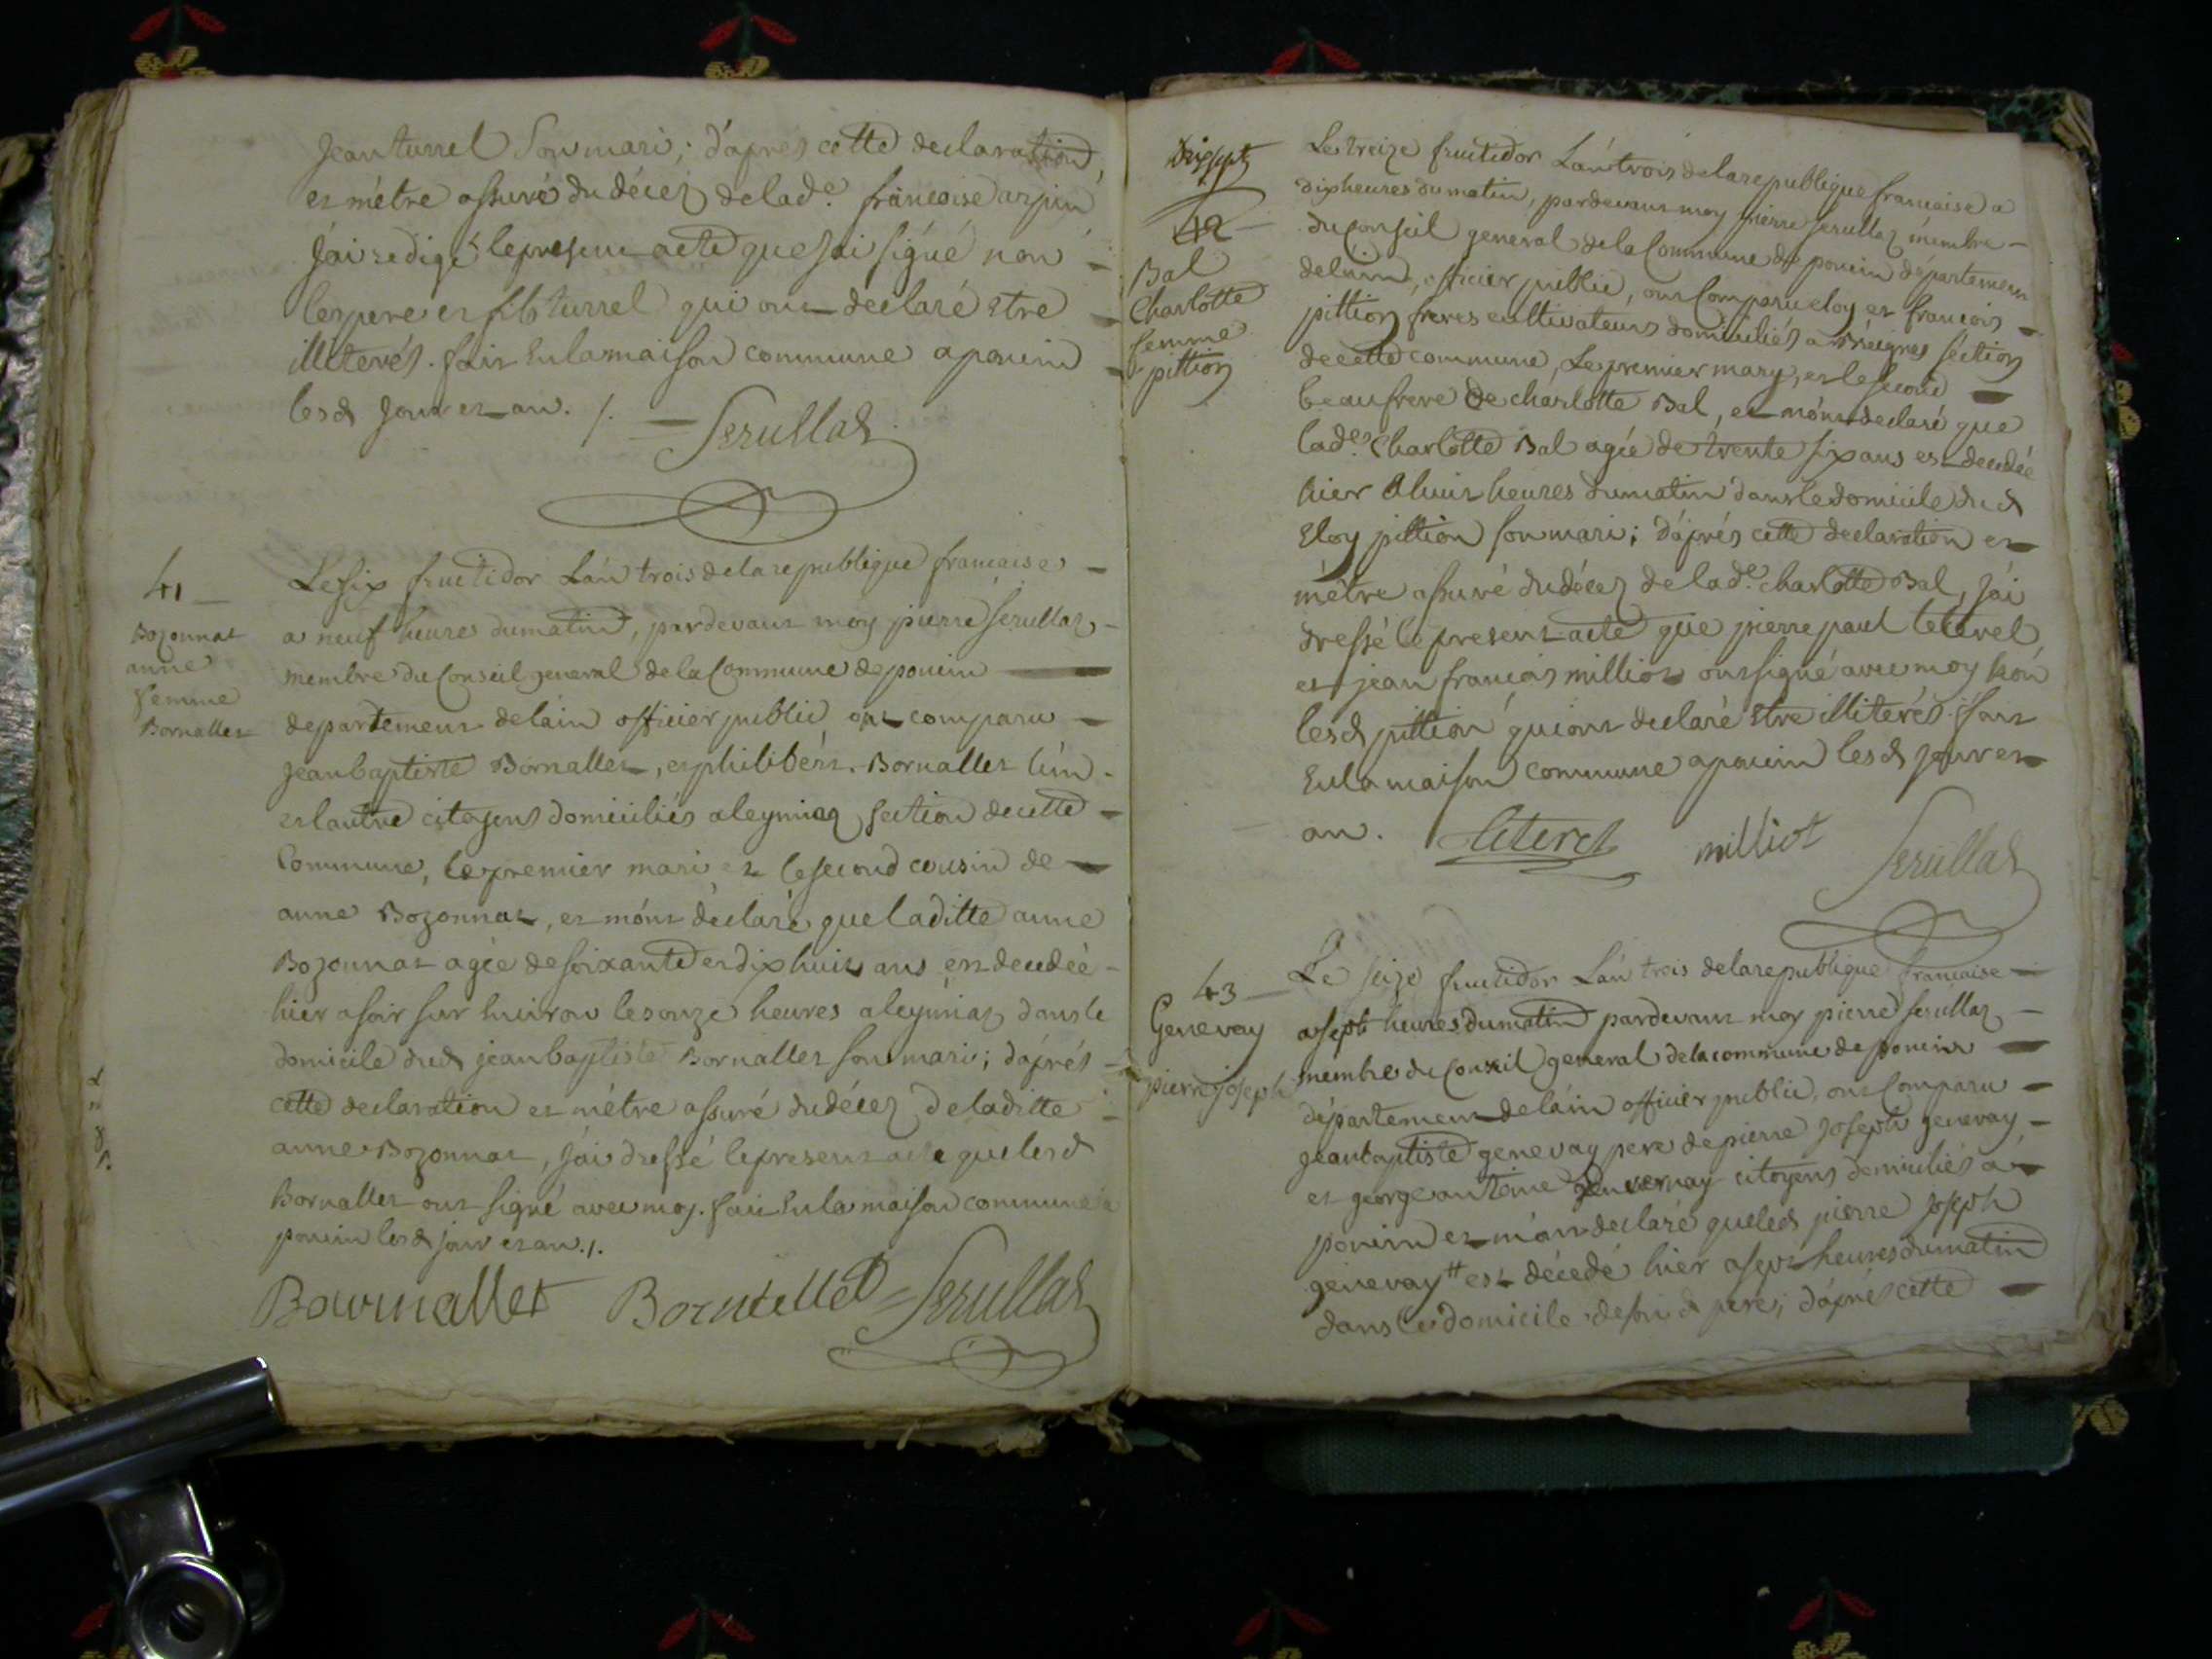 Jean turrel Son mari; d'aprés cette declaration
et m'etre assuré du décez de lad.e francoise arpin
J'ai redigé le present acte que J'ai signé non
les pere et fils turrel qui ont declaré etre
illiterés. fait En la maison commune a poncin
lesd Jour et an. /. Serullaz
41
Bozonnat
anne
femme
Bornallet
Le six fructidor L'an trois de la republique francaise
a neuf heures du matin, pardevant moy pierre serullaz
membre du Conseil general de la Commune de poncin
departement de l'ain officier public ont comparu
Jean baptiste Bornallet, et philibért Bornallet l'un
et lautre citoyens domiciliés a leymiaz section de cette
Commune, le premier mari et le second cousin de
anne Bozonnat, et m'ont déclaré que laditte anne
Bozonnat agée de soixante et dix huit ans est decedée
hier a soir sur les onze heures a leymiaz dans le
domicile dud jean baptiste Bornallet son mari; d'aprés
cette declaration et m'etre assuré du décez de laditte
anne Bozonnat, j'ai dressé le present acte que lesd
bornallet ont signé avec moy. fait En la maison commune a
poncin lesd jour et an. /.
Bournallet Bornallet Serullaz
dix sept
42
Bal
Charlotte
femme
pittion
Le treize fructidor L'an trois de la republique francaise a
dix heures du matin, pardevant moy pierre serullaz membre
du Conseil general de la Commune de poncin départemen
de l'ain, officier public, ont Comparu eloy et francois
pittion freres cultivateurs domiciliés a section
de cette commune, Le premier mary, et le second
beaufrere de charlotte Bal, et m'ont declaré que
lad.e Charlotte Bal agée de trente six ans est decedée
hier a huit heures du matin dans le domicile dud
Eloy pittion son mari; d'aprés cette declaration et
m'etre assuré du décez de lad.e charlotte Bal, j'ai
dressé le present acte que pierre paul literel
et jean francois milliot ont signé avec moy non
lesd pittion qui ont declaré etre illiterés. fait
En la maison commune a poncin lesd jour et
an. milliot Serullaz
43
Genevay
pierre joseph
Le seize fructidor L'an trois de la republique francaise
a sept heures du matin pardevant moy pierre serullaz
membre du Conseil general de la commune de poncin
département de l'ain officier public, ont Comparu
Jean baptiste genevay pere de pierre Joseph genevay
et george antoine citoyens domiciliés a
poncin et m'ont declaré que led pierre Joseph
genevay # est décedé hier a sept heures du matin
dans le domicile de son d pere; d'aprés cette